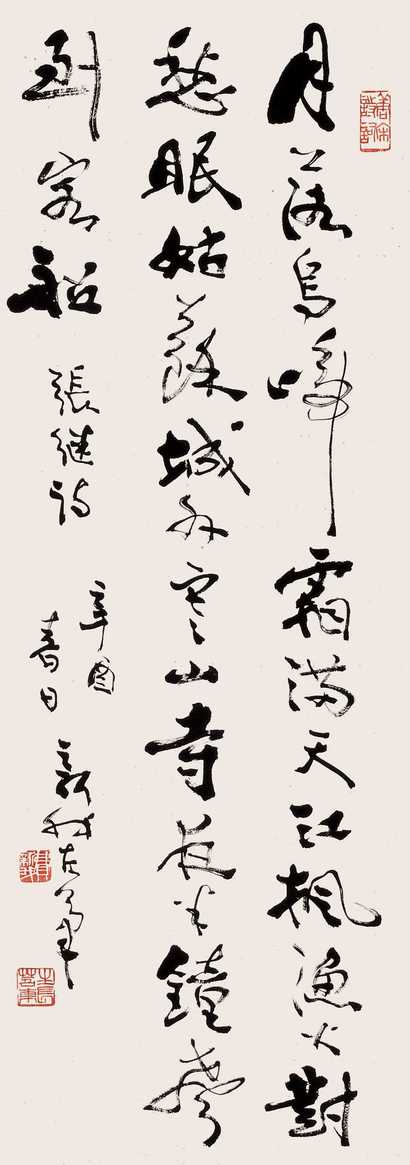 月落烏啼霜滿天江楓漁火對
愁眠姑蘇城外寒山寺夜半鐘聲
到客船
張继詩
辛酉
春日
新我左筆